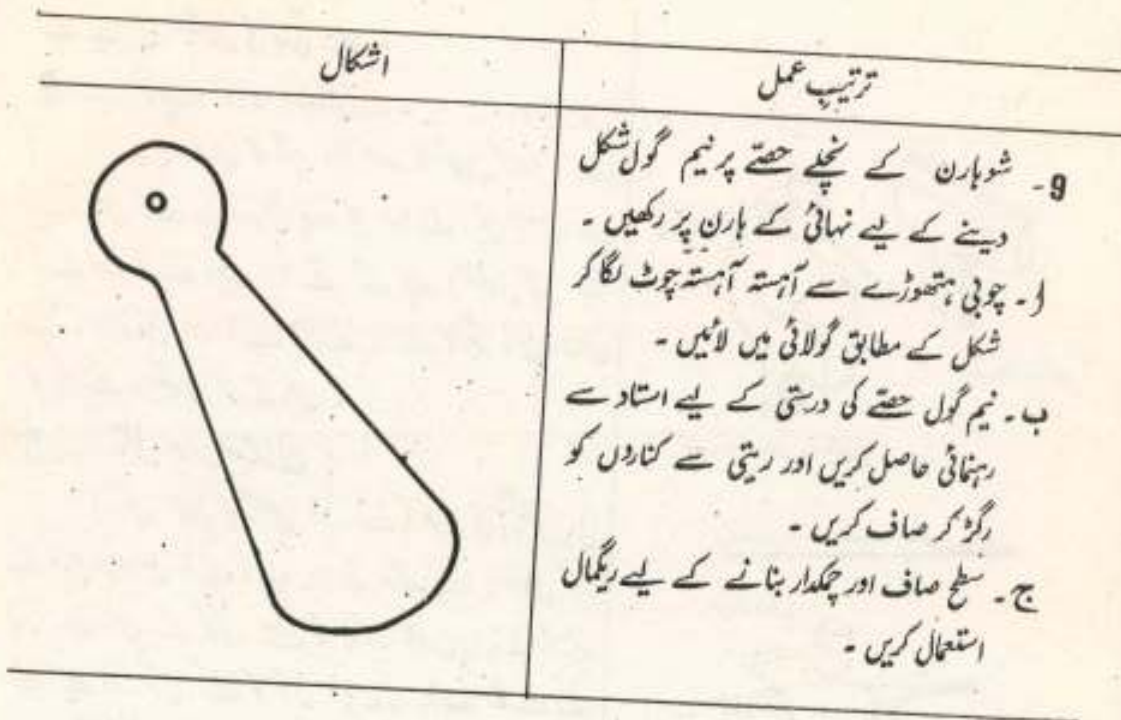 ترتیبِ عمل
اشکال
9۔ شوہارن کے نچلے حصّے پر نیم گول شکل
دینے کے لیے نہائی کے ہارن پر رکھیں ۔
ا۔ چوبی ہتھوڑے سے آہستہ آہستہ چوٹ لگا کر
شکل کے مطابق گولائی میں لائیں ۔
ب۔ نیم گول حصّے کی درستی کے لیے استاد سے
رہنمائی حاصل کریں اور ریتی سے کناروں کو
رگڑ کر صاف کریں ۔
ج۔ سطح صاف اور چمکدار بنانے کے لیے ریگمال
استعمال کریں ۔